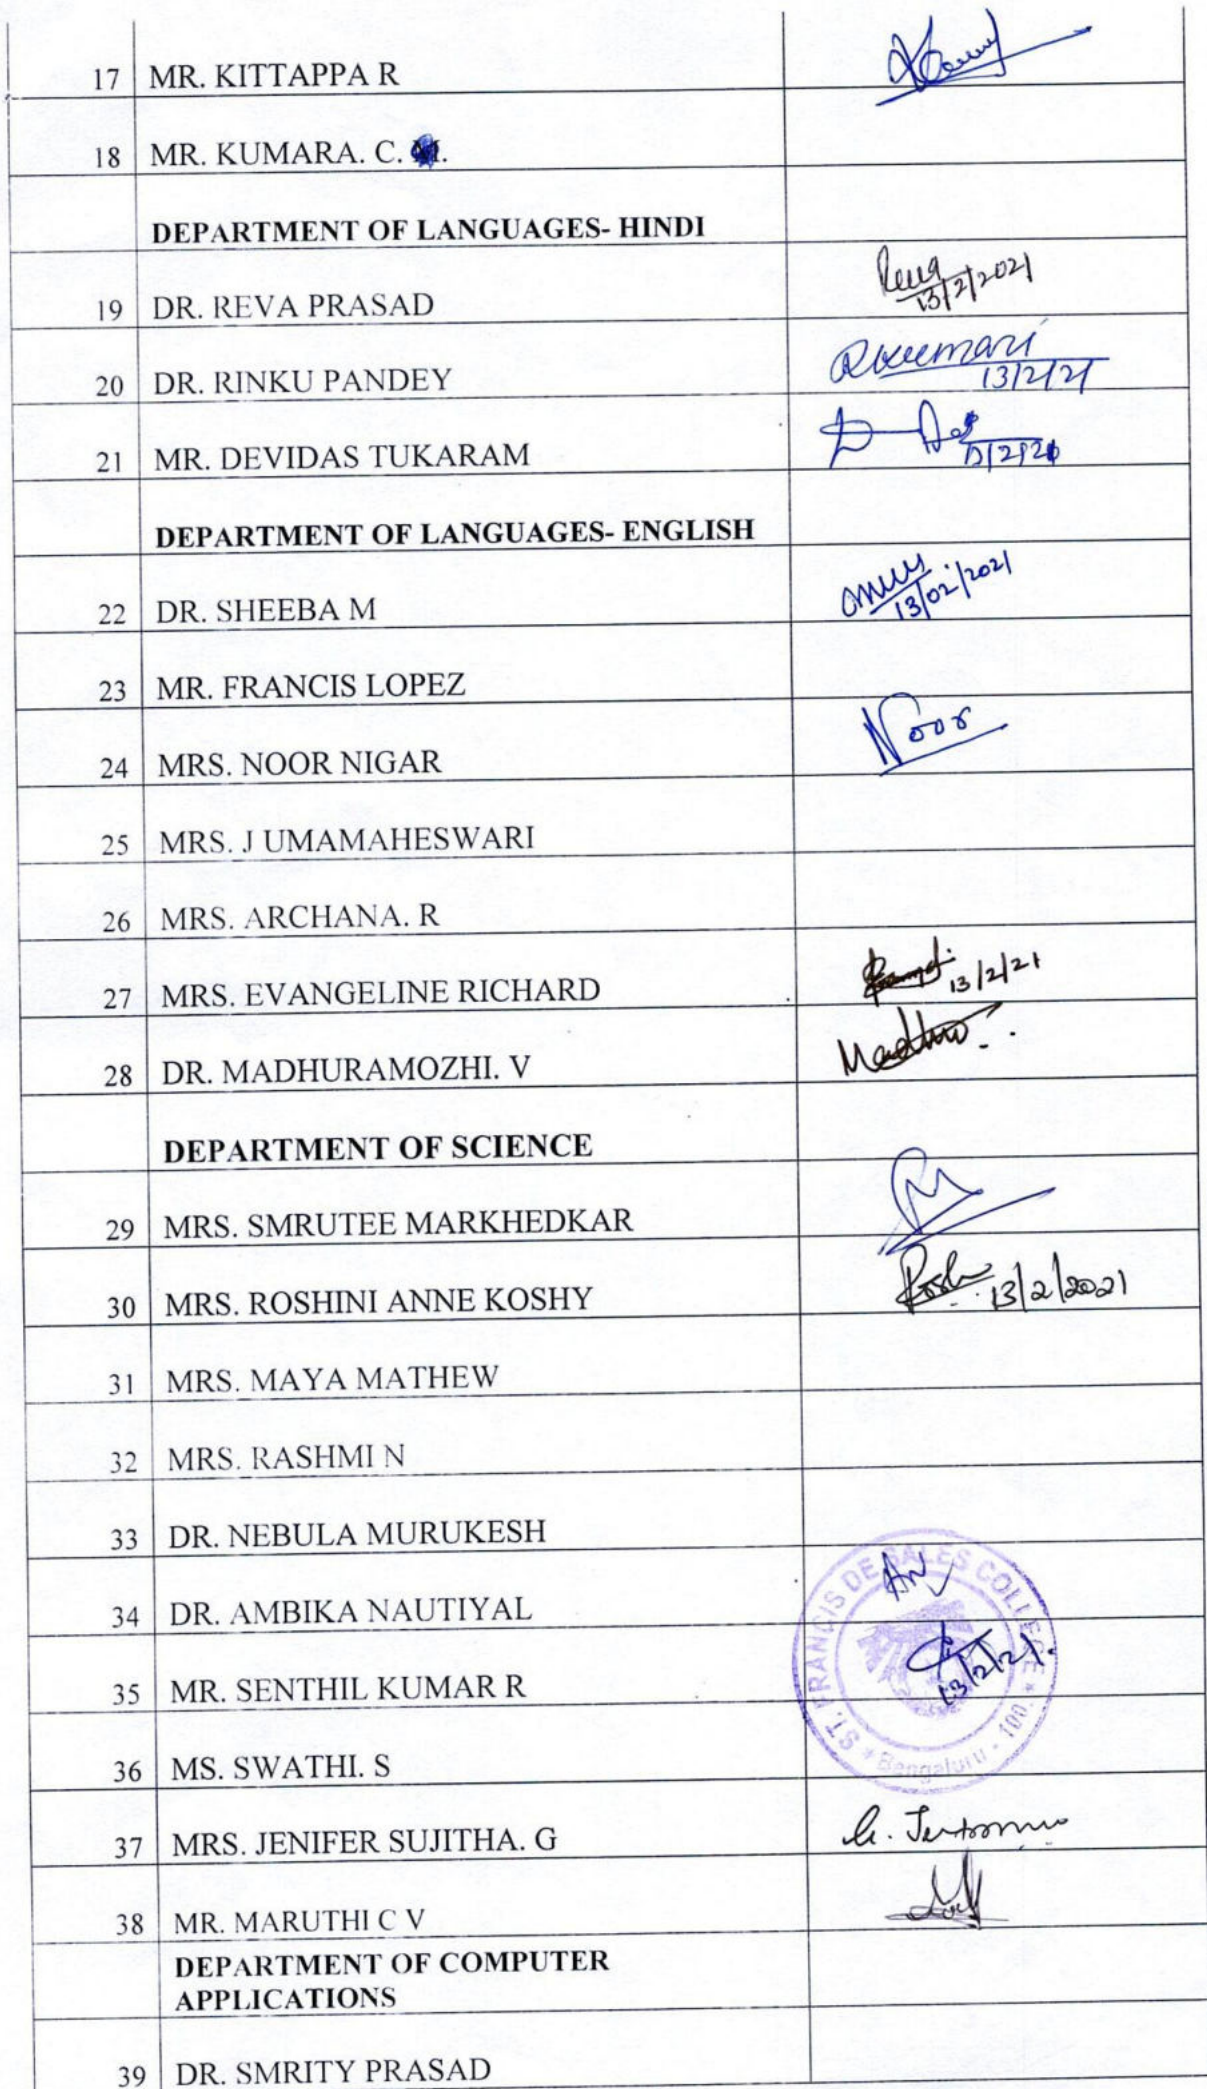 17 MR. KITTAPPA R
18 MR. KUMARA. C. M.
DEPARTMENT OF LANGUAGES- HINDI
19 DR. REVA PRASAD Reva 13/2/2021
20 DR. RINKU PANDEY RKumari 13/2/21
21 MR. DEVIDAS TUKARAM 13/2/21
DEPARTMENT OF LANGUAGES- ENGLISH
22 DR. SHEEBA M 13/02/2021
23 MR. FRANCIS LOPEZ
24 MRS. NOOR NIGAR Noor
25 MRS. J UMAMAHESWARI
26 MRS. ARCHANA. R
27 MRS. EVANGELINE RICHARD 13/2/21
28 DR. MADHURAMOZHI. V Madhu
DEPARTMENT OF SCIENCE
29 MRS. SMRUTEE MARKHEDKAR
30 MRS. ROSHINI ANNE KOSHY 13/2/2021
31 MRS. MAYA MATHEW
32 MRS. RASHMI N
33 DR. NEBULA MURUKESH
34 DR. AMBIKA NAUTIYAL AN
35 MR. SENTHIL KUMAR R 13/2/21.
ST. FRANCIS DE SALES COLLEGE * Bengaluru - 100. *
36 MS. SWATHI. S
37 MRS. JENIFER SUJITHA. G
38 MR. MARUTHI C V
DEPARTMENT OF COMPUTER
APPLICATIONS
39 DR. SMRITY PRASAD